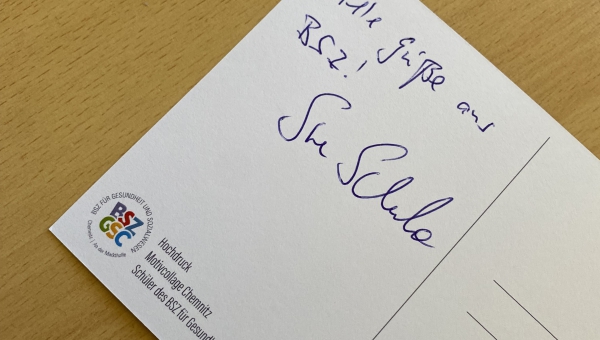 Grüße aus
BSZ!
BSZ FÜR GESUNDHEIT UND SOZIALWESEN
BSZ
GSC
Chemnitz | An der Markthalle
Hochdruck
Motivcollage Chemnitz
Schüler des BSZ für Gesundh